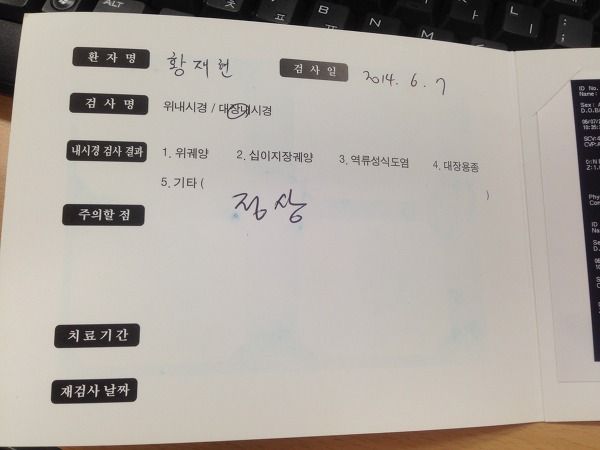 환자명 황재현 검사일 2014. 6. 7
검사명 위내시경 / 대장내시경
내시경 검사 결과 1. 위궤양 2. 십이지장궤양 3. 역류성식도염 4. 대장용종
5. 기타 ( 정상 )
주의할 점
치료기간
재검사 날짜
ALT
ID No.
Name:
Sex: A
D.O.B
06/07/2